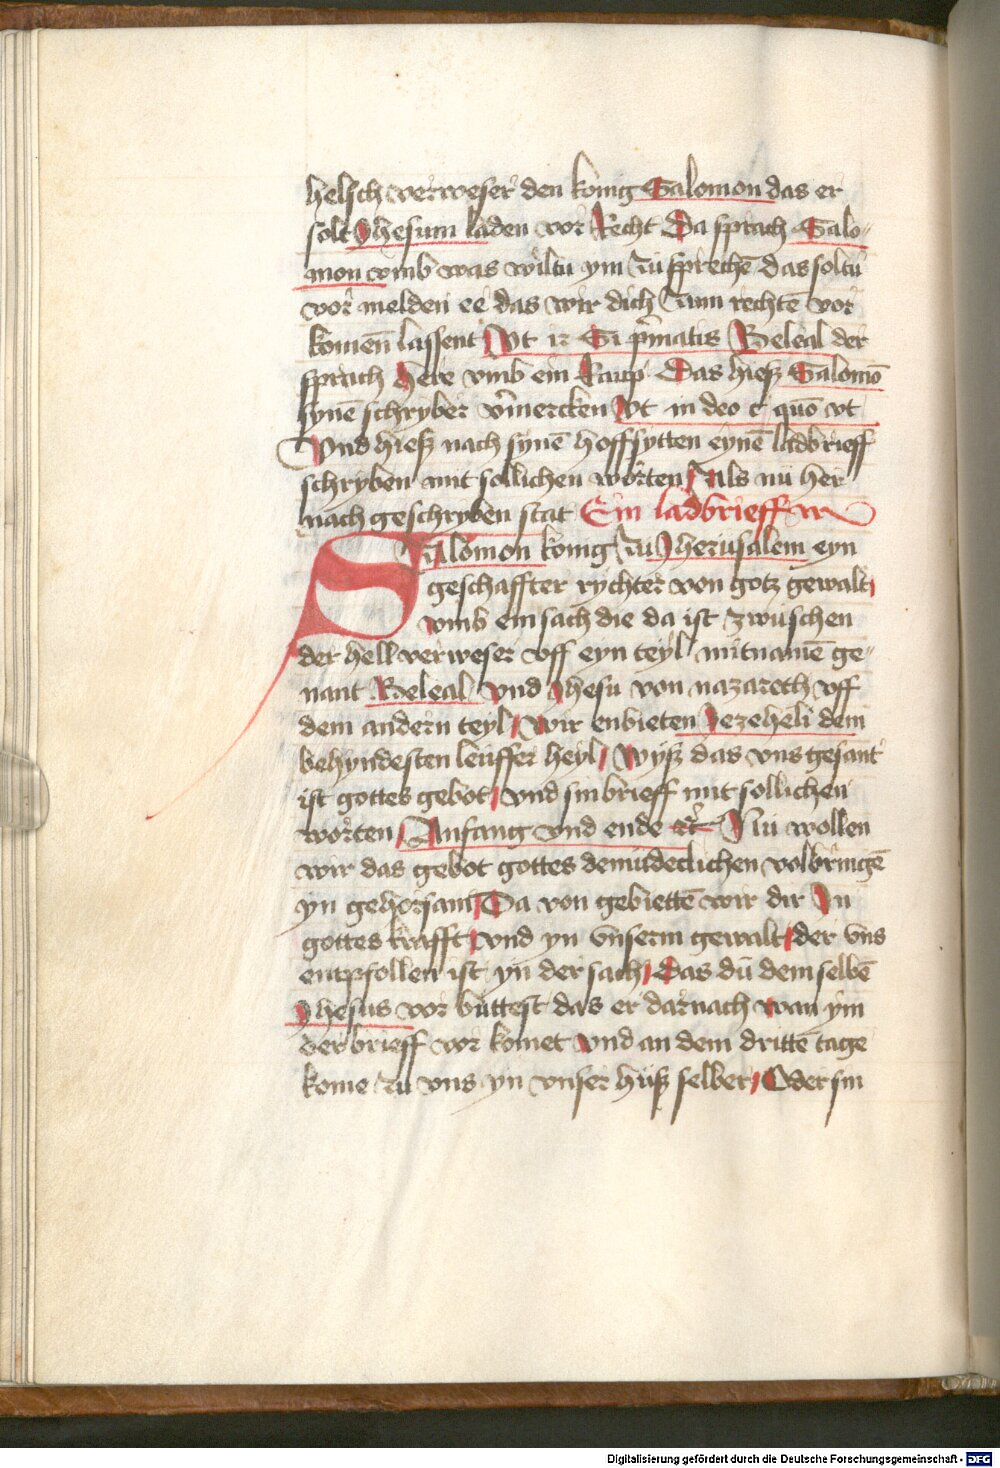 helsch verweser den konig Salomon das er
solt Jhesum laden vor Recht Da sprach Salo-
mon vmb was wiltu ym zu sprechē das soltu
vor melden ee das wir dich zum rechtē vor
komen lassent Vt Si Beleal der
sprach Here vmb ein Raup Das hiesz Salomō
synē schryber v̄mercken Vt in deo c quō vt
Vnd hiesz nach synē hoffsytten eynē ladbrieff
schryben mit sollichen worten Als nu her
nach geschryben stat Ein ladbrieff
Salomon konig zu Jherusalem eyn
geschaffter rychter von gotz gewalt
vmb ein sach die da ist zwuschen
der hell verweser vff eyn teyl mit namē ge-
nant Beleal vnd Jhesu von nazareth vff
dem andern teyl Wir enbieten Jezeheli dem
behyndesten leuffer heyl Wysz das vns gesant
ist gottes gebot vnd sin brieff mit sollichen
worten Anfang vnd ende Nu wollen
wir das gebot gottes demudeclichen volbringē
yn gehorsam Da von gebiettē wir dir In
gottes krafft vnd yn vnserm gewalt der vns
entpfollen ist yn der sach Das du dem selbē
Jhesus vor buttest das er darnach wan ym
der brieff vor komet vnd an dem drittē tage
kome zu vns yn vnser husz selber Oder sin
Digitalisierung gefördert durch die Deutsche Forschungsgemeinschaft - DFG